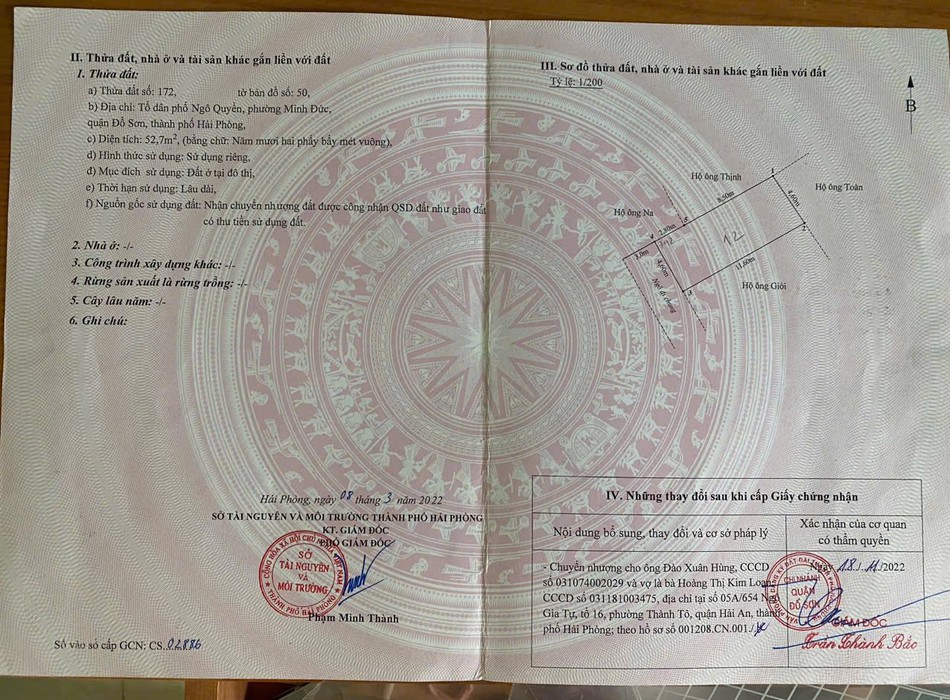 II. Thửa đất, nhà ở và tài sản khác gắn liền với đất
1. Thửa đất:
a) Thửa đất số: 172, tờ bản đồ số: 50,
b) Địa chỉ: Tổ dân phố Ngô Quyền, phường Minh Đức,
quận Đồ Sơn, thành phố Hải Phòng,
c) Diện tích: 52,7m², (bằng chữ: Năm mươi hai phẩy bẩy mét vuông),
d) Hình thức sử dụng: Sử dụng riêng,
đ) Mục đích sử dụng: Đất ở tại đô thị,
e) Thời hạn sử dụng: Lâu dài,
f) Nguồn gốc sử dụng đất: Nhận chuyển nhượng đất được công nhận QSD đất như giao đất
có thu tiền sử dụng đất.
2. Nhà ở: -/-
3. Công trình xây dựng khác: -/-
4. Rừng sản xuất là rừng trồng: -/-
5. Cây lâu năm: -/-
6. Ghi chú:
Hải Phòng, ngày 08 tháng 3 năm 2022
SỞ TÀI NGUYÊN VÀ MÔI TRƯỜNG THÀNH PHỐ HẢI PHÒNG
KT. GIÁM ĐỐC
PHÓ GIÁM ĐỐC
SỞ
TÀI NGUYÊN
VÀ
MÔI TRƯỜNG
THÀNH PHỐ HẢI PHÒNG
Phạm Minh Thành
Số vào sổ cấp GCN: CS.02886
III. Sơ đồ thửa đất, nhà ở và tài sản khác gắn liền với đất
Tỷ lệ: 1/200
B
Hộ ông Thịnh
1
Hộ ông Toàn
8,50m
4,60m
Hộ ông Na
5
2
2,80m
4
12
3,0m
4,60m
11,60m
3
Hộ ông Giỏi
Ngõ đi chung
IV. Những thay đổi sau khi cấp Giấy chứng nhận
Nội dung bổ sung, thay đổi và cơ sở pháp lý
Xác nhận của cơ quan
có thẩm quyền
- Chuyển nhượng cho ông Đào Xuân Hùng, CCCD
số 031074002029 và vợ là bà Hoàng Thị Kim Loan,
CCCD số 031181003475, địa chỉ tại số 05A/654 Ngô
Gia Tự, tổ 16, phường Thành Tô, quận Hải An, thành
phố Hải Phòng; theo hồ sơ số 001208.CN.001./.
Ngày 18/11/2022
CHI NHÁNH
QUẬN
ĐỒ SƠN
GIÁM ĐỐC
Trần Thành Bắc